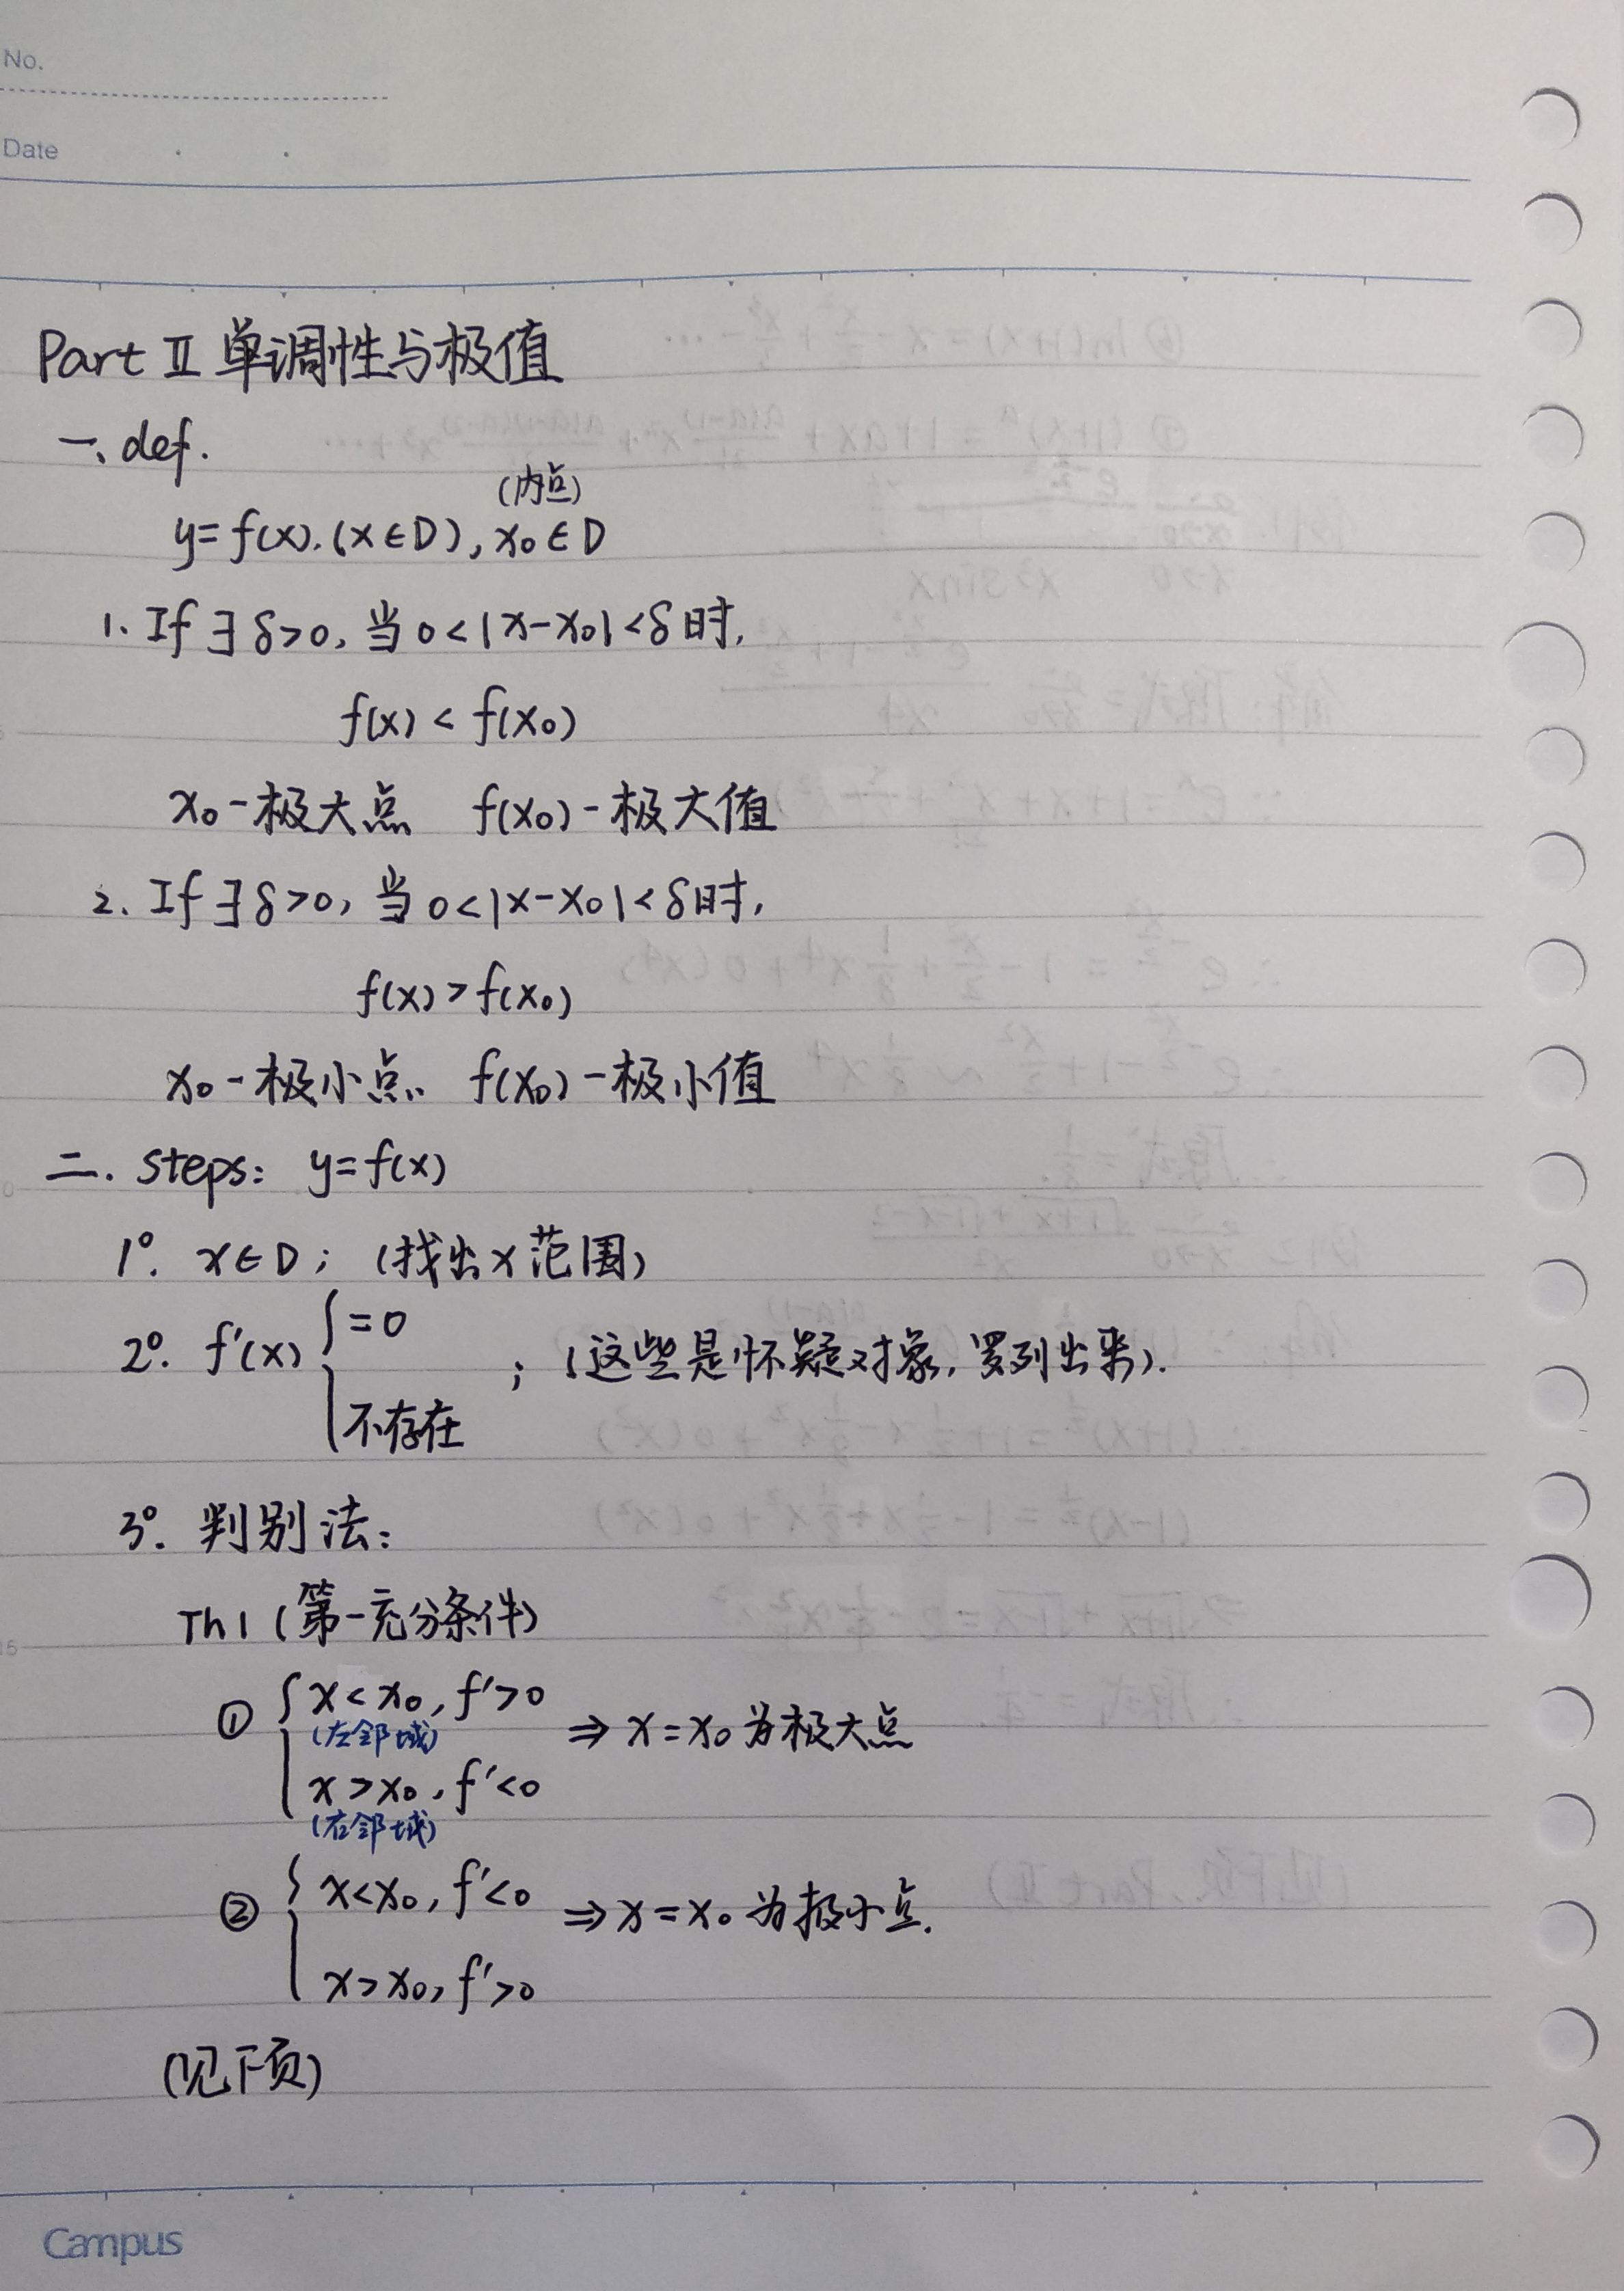 No.
Date
Part Ⅱ 单调性与极值
一、def.
(内点)
y=f(x).(x∈D), x₀∈D
1. If ∃δ>0, 当 0<|x-x₀|<δ时,
f(x) < f(x₀)
x₀-极大点 f(x₀)-极大值
2. If ∃δ>0, 当 0<|x-x₀|<δ时,
f(x) > f(x₀)
x₀-极小点、 f(x₀)-极小值
二. steps: y=f(x)
1°. x∈D; (找出x范围)
2°. f'(x) { =0
; (这些是怀疑对象, 罗列出来).
不存在
3°. 判别法:
Th1 (第一充分条件)
① { x<x₀, f'>0
(左邻域) ⇒ x=x₀ 为极大点
x>x₀, f'<0
(右邻域)
② { x<x₀, f'<0 ⇒ x=x₀ 为极小点.
x>x₀, f'>0
(见下页)
Campus